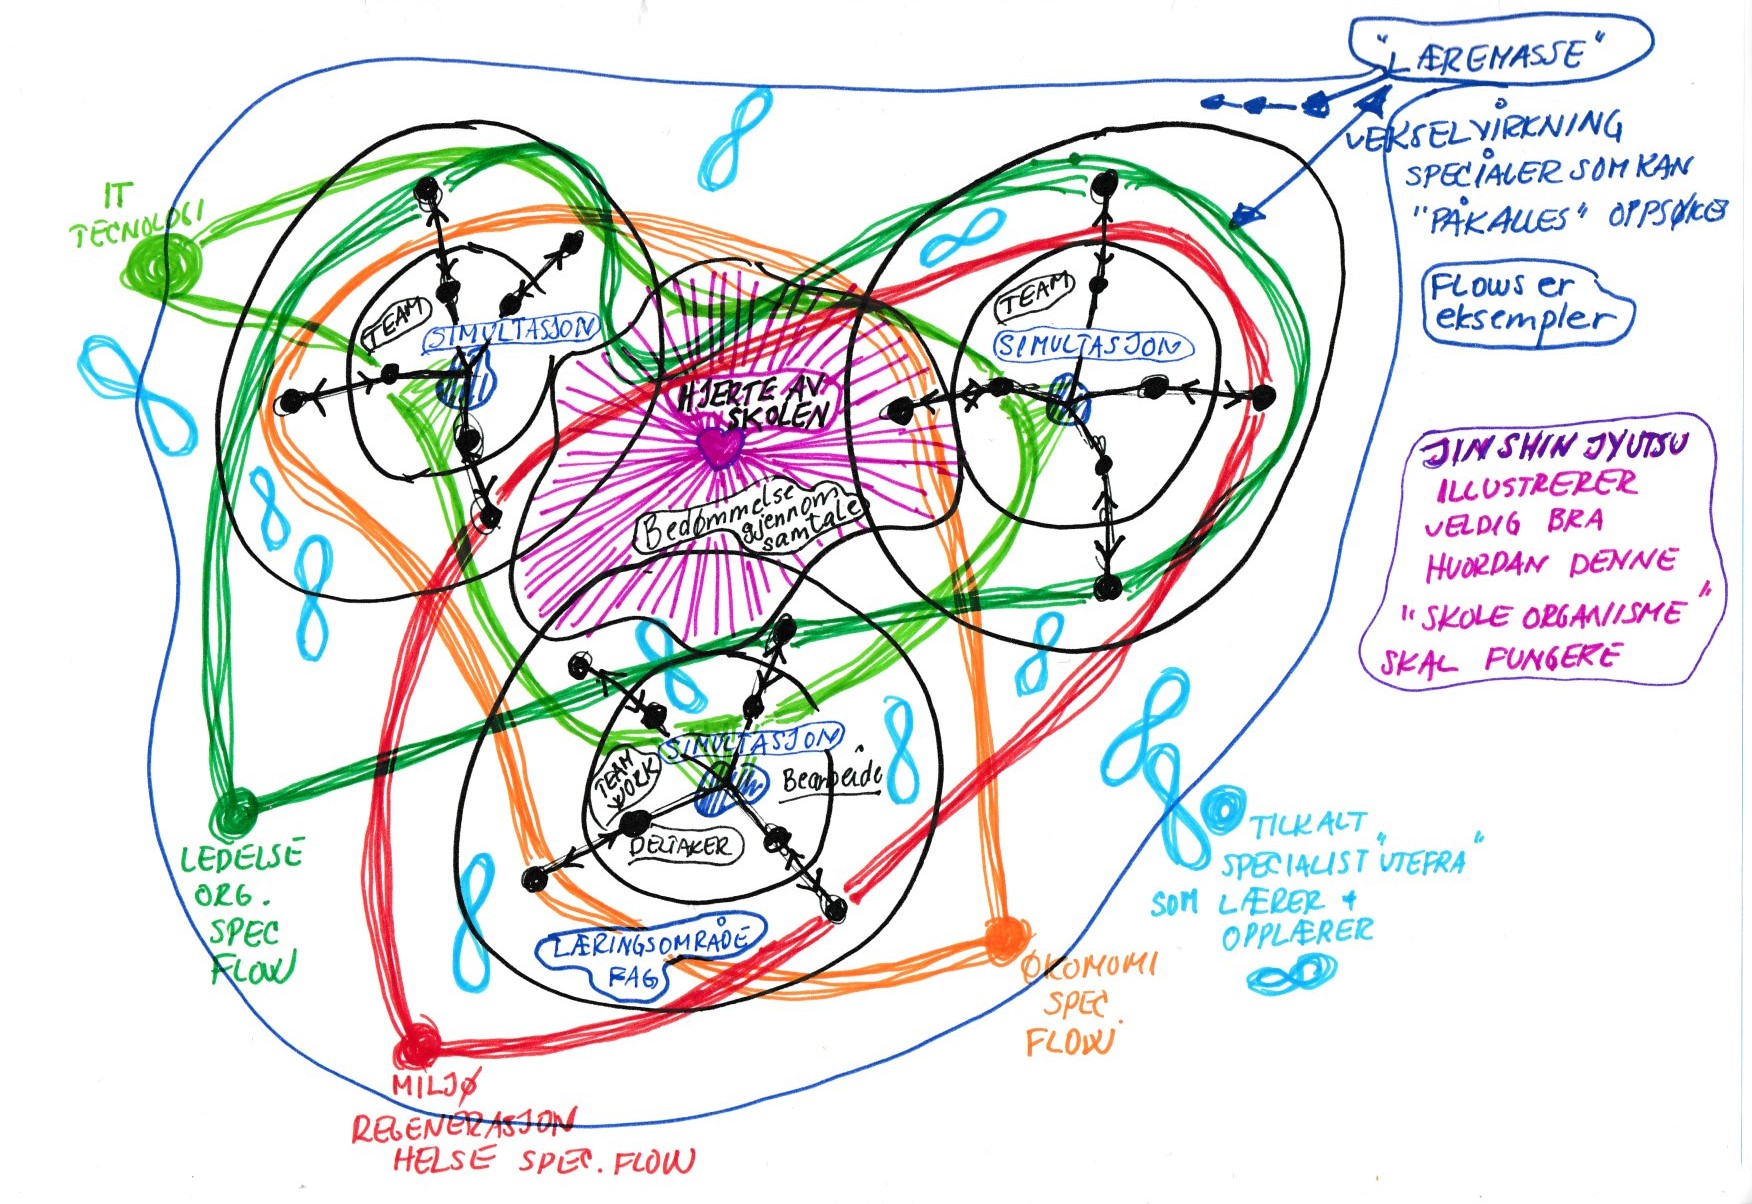 "LÆREMASSE"
VEKSELVIRKNING
SPECIALER SOM KAN
"PÅKALLES" OPPSØKES
Flows er
eksempler
IT
TECNOLOGI
TEAM
SIMULTASJON
TEAM
SIMULTASJON
HJERTE AV
SKOLEN
Bedømmelse
gjennom
samtale
JIN SHIN JYUTSU
ILLUSTRERER
VELDIG BRA
HVORDAN DENNE
"SKOLE ORGANIISME"
SKAL FUNGERE
SIMULTASJON
TEAM
WORK
Bearbeide
DELTAKER
LÆRINGSOMRÅDE
FAG
LEDELSE
ORG.
SPEC
FLOW
TILKALT
SPECIALIST "UTEFRA"
SOM LÆRER +
OPPLÆRER
ØKOMOMI
SPEC.
FLOW
MILJØ
REGENERASJON
HELSE SPEC. FLOW